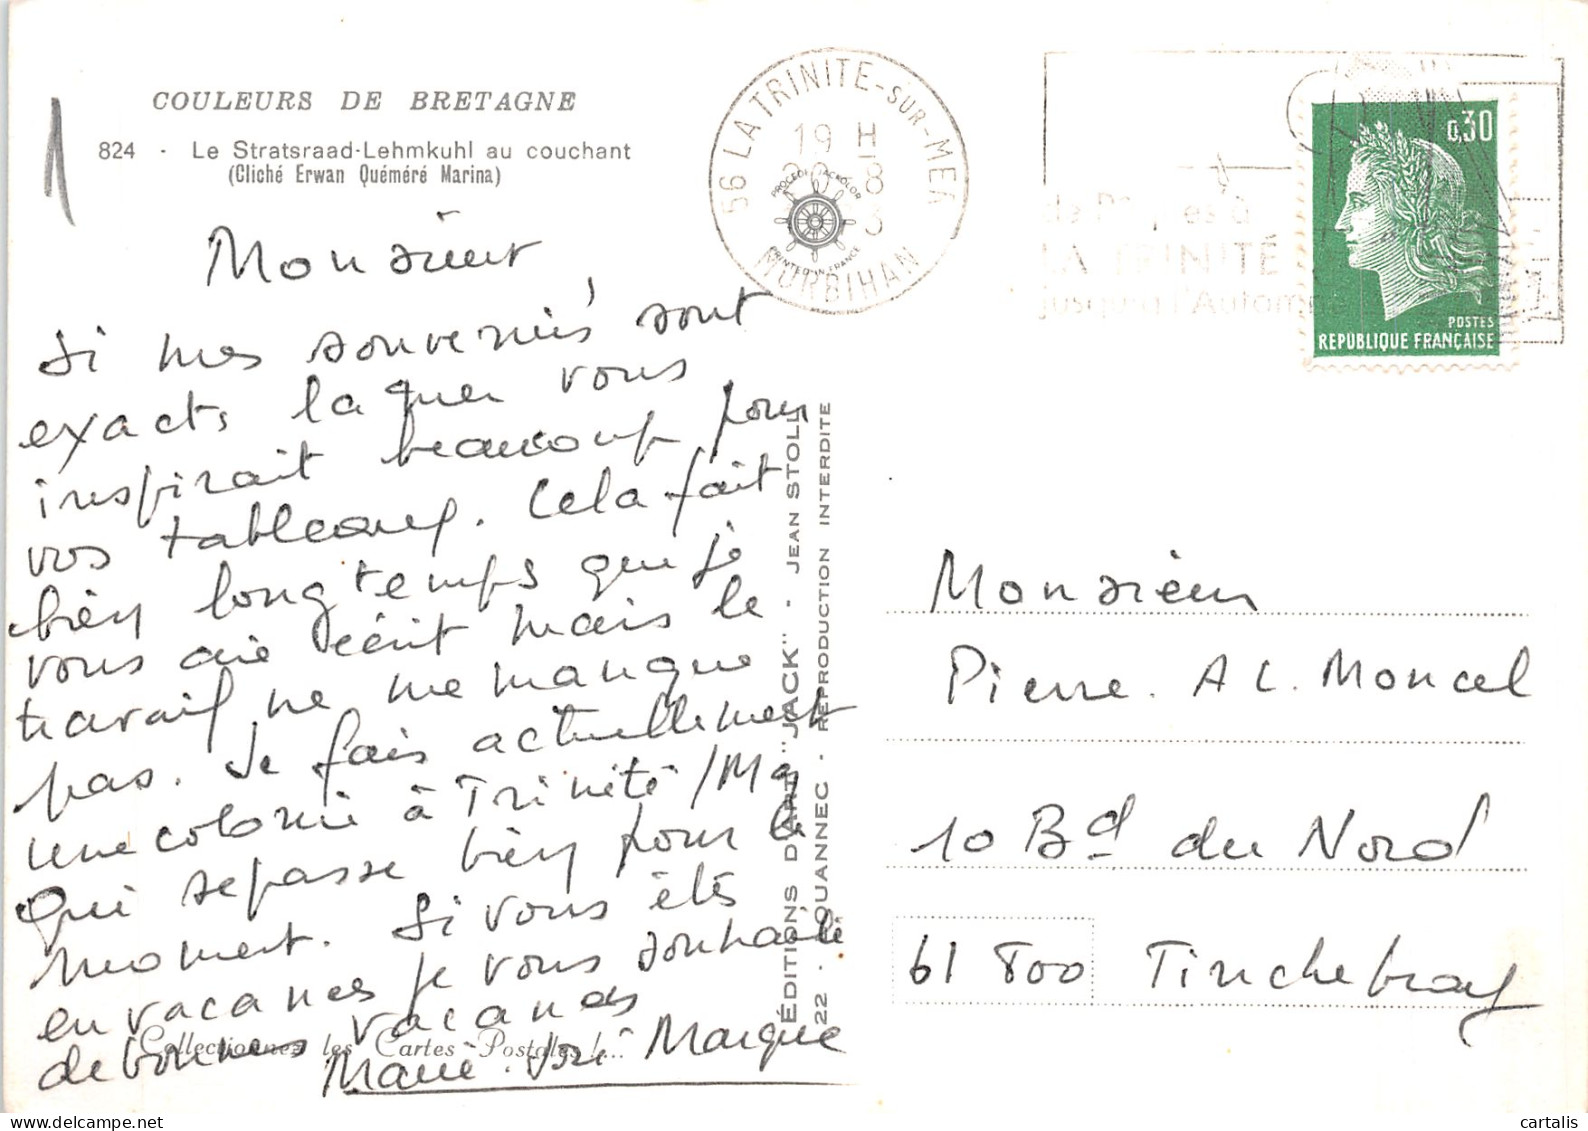 1
COULEURS DE BRETAGNE
824 - Le Stratsraad-Lehmkuhl au couchant
(Cliché Erwan Quéméré Marina)
Monsieur
Si mes souvenirs sont
exacts la mer vous
inspirait beaucoup pour
vos tableaux. Cela fait
bien longtemps que je
vous aie écrit mais le
travail ne me manque
pas. Je fais actuellement
une colonie à Trinité/Mer
Qui se passe bien pour le
moment. Si vous êtes
en vacances je vous souhaite
de bonnes vacances
Marie-José Marque
Collectionnez les Cartes Postales !...
ÉDITIONS D'ART "JACK" - JEAN STOLL
22 - LOUANNEC - REPRODUCTION INTERDITE
56 LA TRINITE-SUR-MER
19 H
20-8
MORBIHAN
PROCÉDÉ JACKOLOR
PRINTED IN FRANCE
de Pâques à
LA TRINITÉ
jusqu'à l'Automne
0,30
POSTES
REPUBLIQUE FRANÇAISE
Monsieur
Pierre. AL. Moncel
10 Bd du Nord
61 800 Tinchebray
cartalis